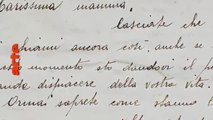 Carissima mamma,
lasciate che
chiami ancora così, anche se
momento sto dandovi il p
dispiacere della vostra vita.
Ormai saprete come stanno